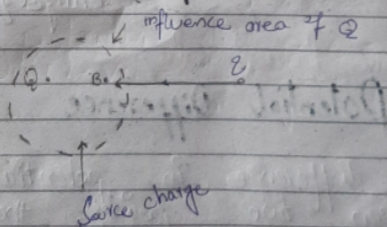 influence area of Q
q
Q. B.
Source charge